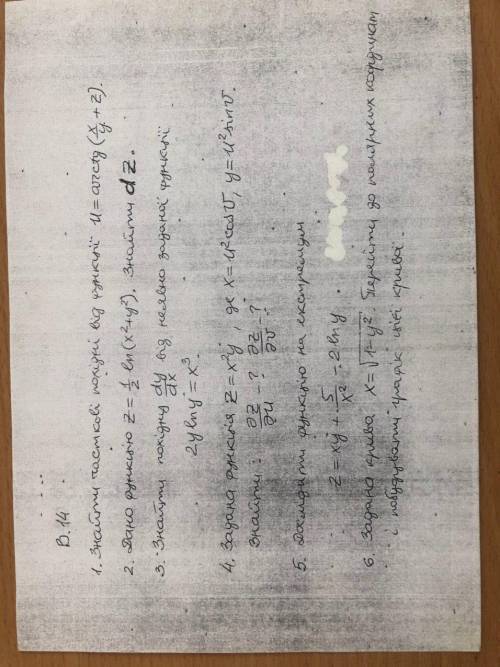 В.14
1. Знайти часткові похідні від функції u = arctg (x/y + z).
2. Дано функцію z = 1/2 ln(x²+y²). Знайти dz.
3. Знайти похідну dy/dx від неявно заданої функції
2y ln y = x³.
4. Задана функція z = x²y, де x = u² cos v, y = u² sin v.
Знайти: ∂z/∂u -? ∂z/∂v -?
5. Дослідити функцію на екстремум
z = xy + 5/x² - 2 ln y
6. Задано крива x = √1-y². Перейти до полярних координат
і побудувати графік цієї кривої.